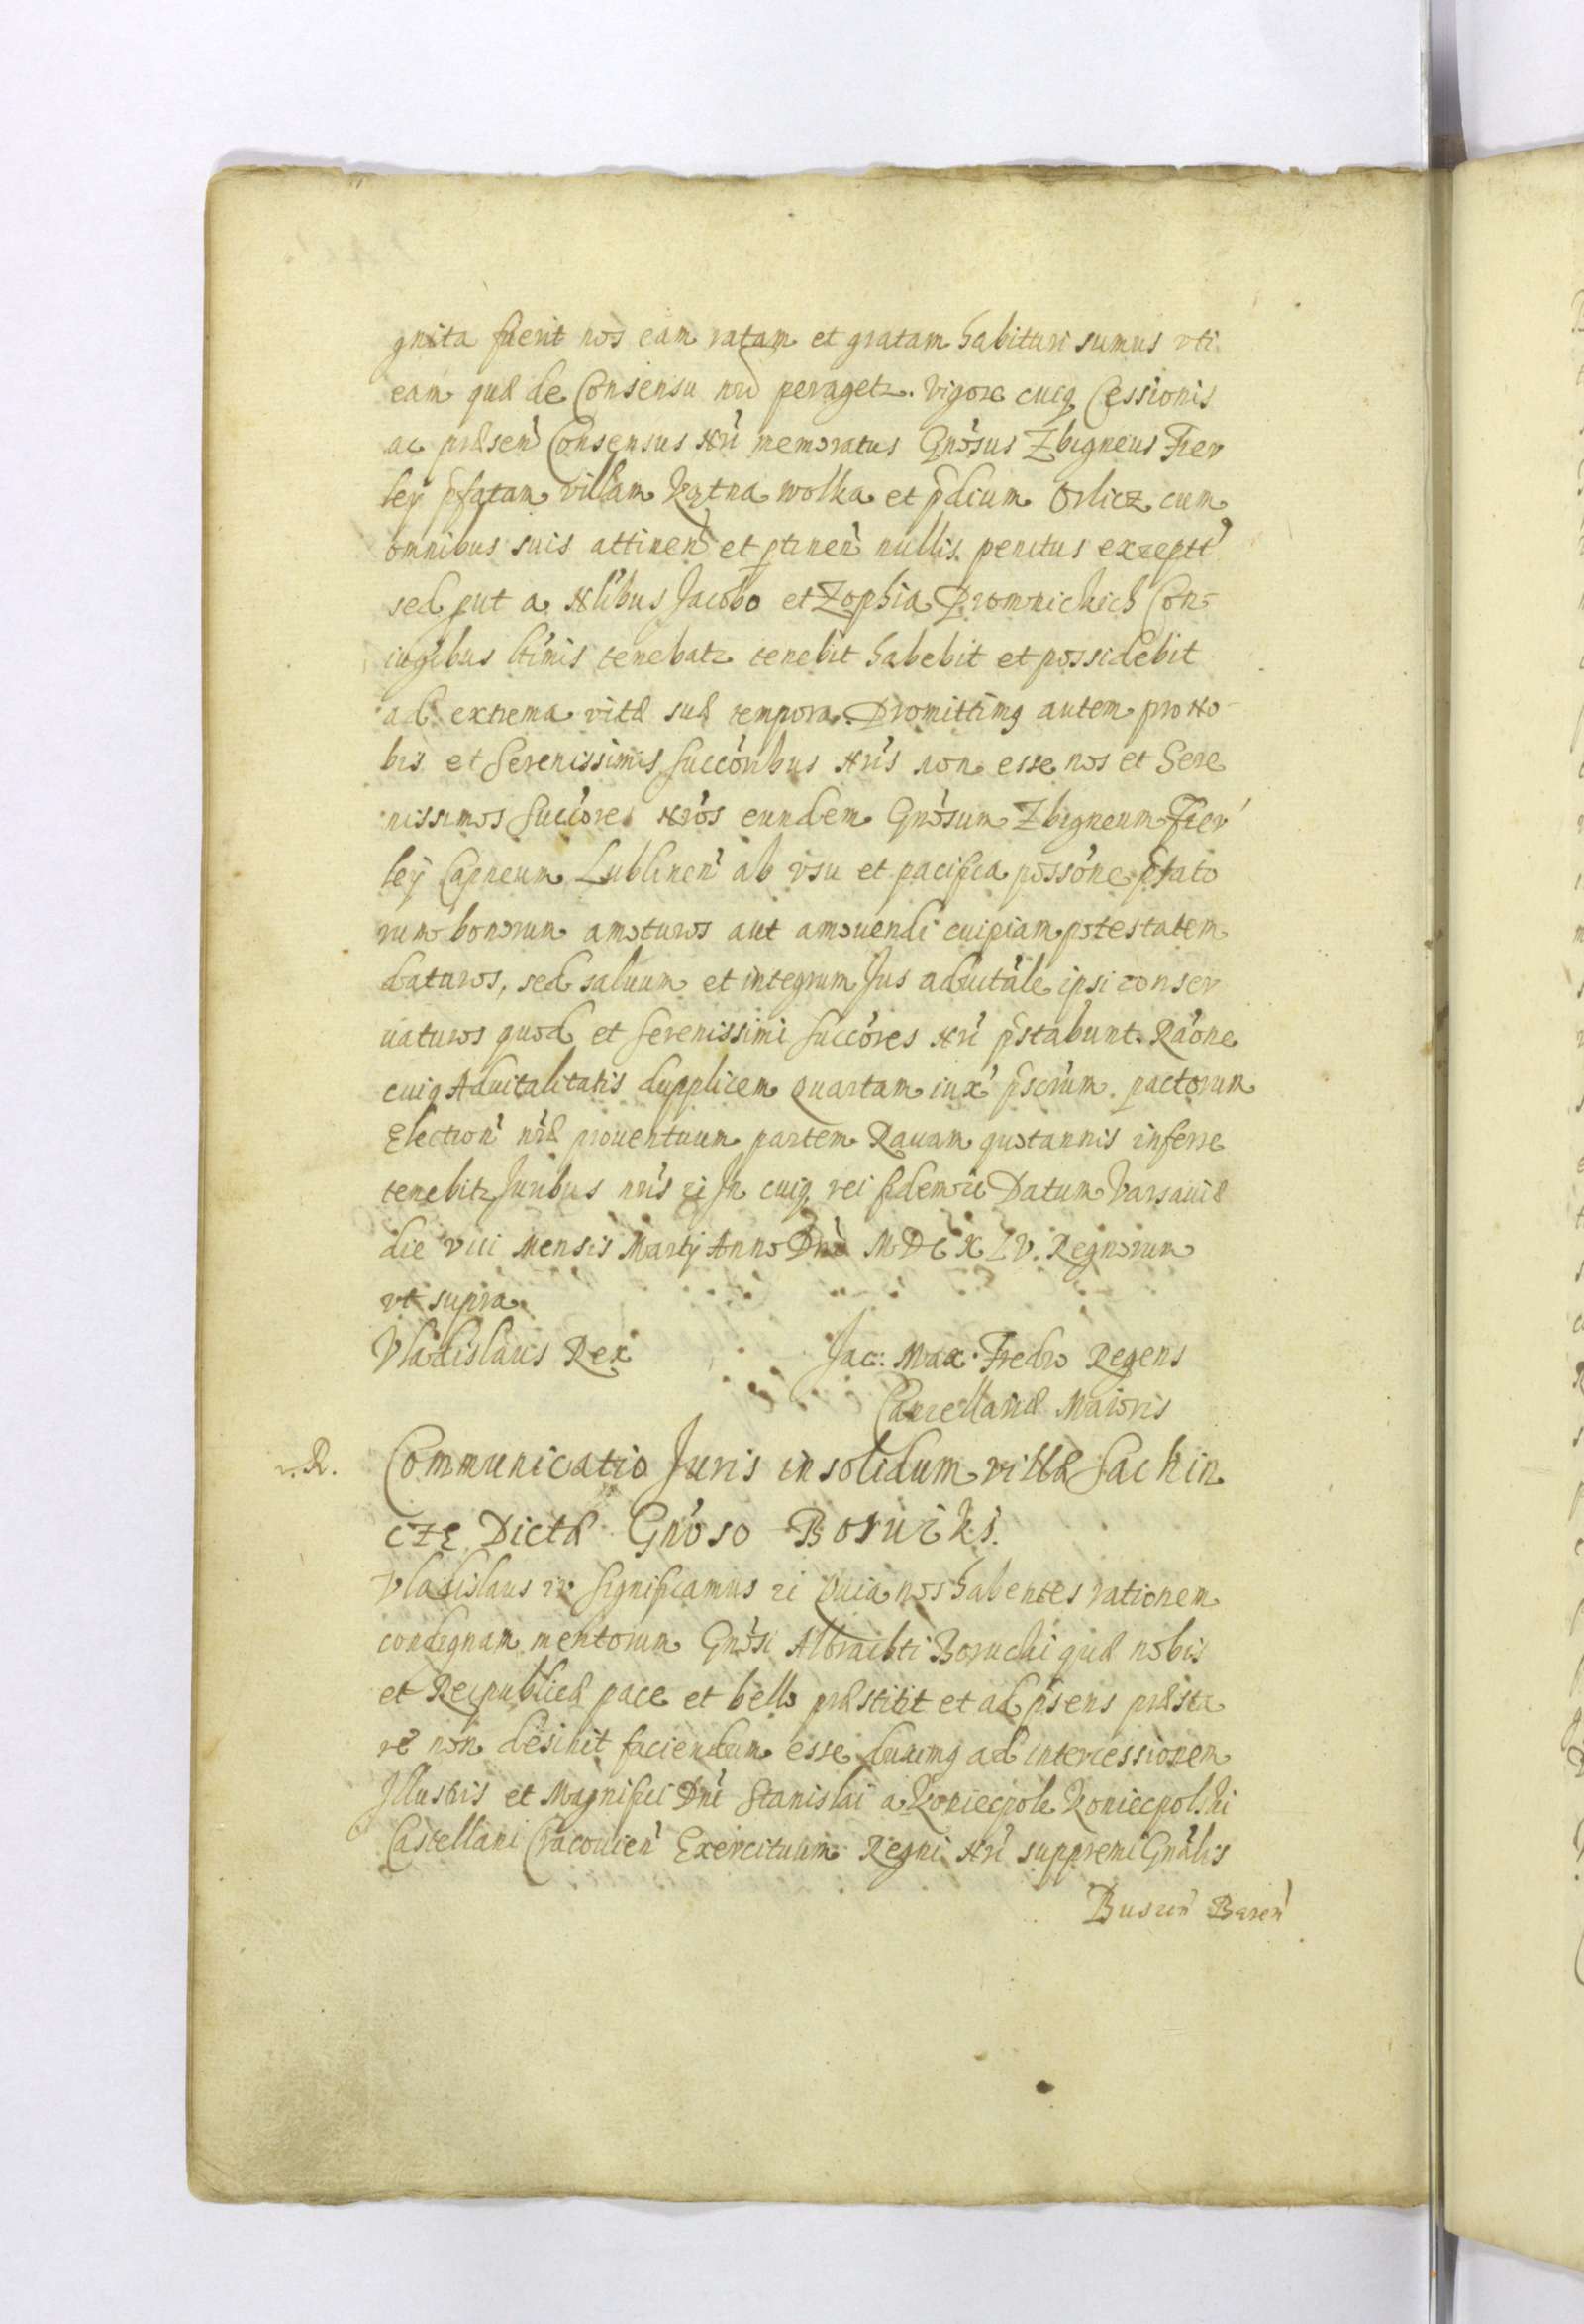 gnita fuerit nos eam ratam et gratam habituri sumus vti
eam quæ de Consensu nro peragetr. Vigore cuiq Cessionis
ac præsen Consensus Nri memoratus Gnosus Zbigneus Fier
ley pfatam villam Kątna wolka et pdium Orlicz cum
omnibus suis attinen et ptinen nullis penitus except
sed put a Nlibus Jacobo et Zophia Promnickich Con-
iugibus ltimis tenebatr tenebit habebit et possidebit
ad extrema vitæ suæ tempora. Promittimq autem pro No-
bis et Serenissimis Succoribus Nris non esse nos et Sere
nissimos Succores Nros eundem Gnosum Zbigneum Fier
ley Capneum Lublinen ab vsu et pacifica possone pfato
rum bonorum amoturos aut amouendi cuipiam potestatem
daturos, sed saluum et integrum Jus aduitale ipsi conser
uaturos quod et Serenissimi Succores Nri pstabunt. Raone
cuiq Aduitalitatis dupplicem quartam iux pscrum pactorum
Election nræ prouentuum partem Rauam quotannis inferre
tenebitr Juribus nris In cuiq rei fidem Datum Varsauiæ
die VIII Mensis Martij Anno Dni MDCXLV. Regnorum
vt supra
Vladislaus Rex Jac: Max: Fredro Regens
Cancellariæ Maioris
R. Communicatio Juris in solidum villæ Sachin
cze Dictæ Gnoso Borucki.
Vladislaus Significamus Quia nos habentes rationem
condignam meritorum Gnosi Albrachti Borucki quæ nobis
et Reipublicæ pace et bello præstitit et ad psens præsta
re non desinit faciendum esse duximq ad intercessionem
Illustris et Magnifici Dni Stanislai a Koniecpole Koniecpolski
Castellani Cracouien Exercituum Regni Nri suppremi Gnalis
Buscen Baren